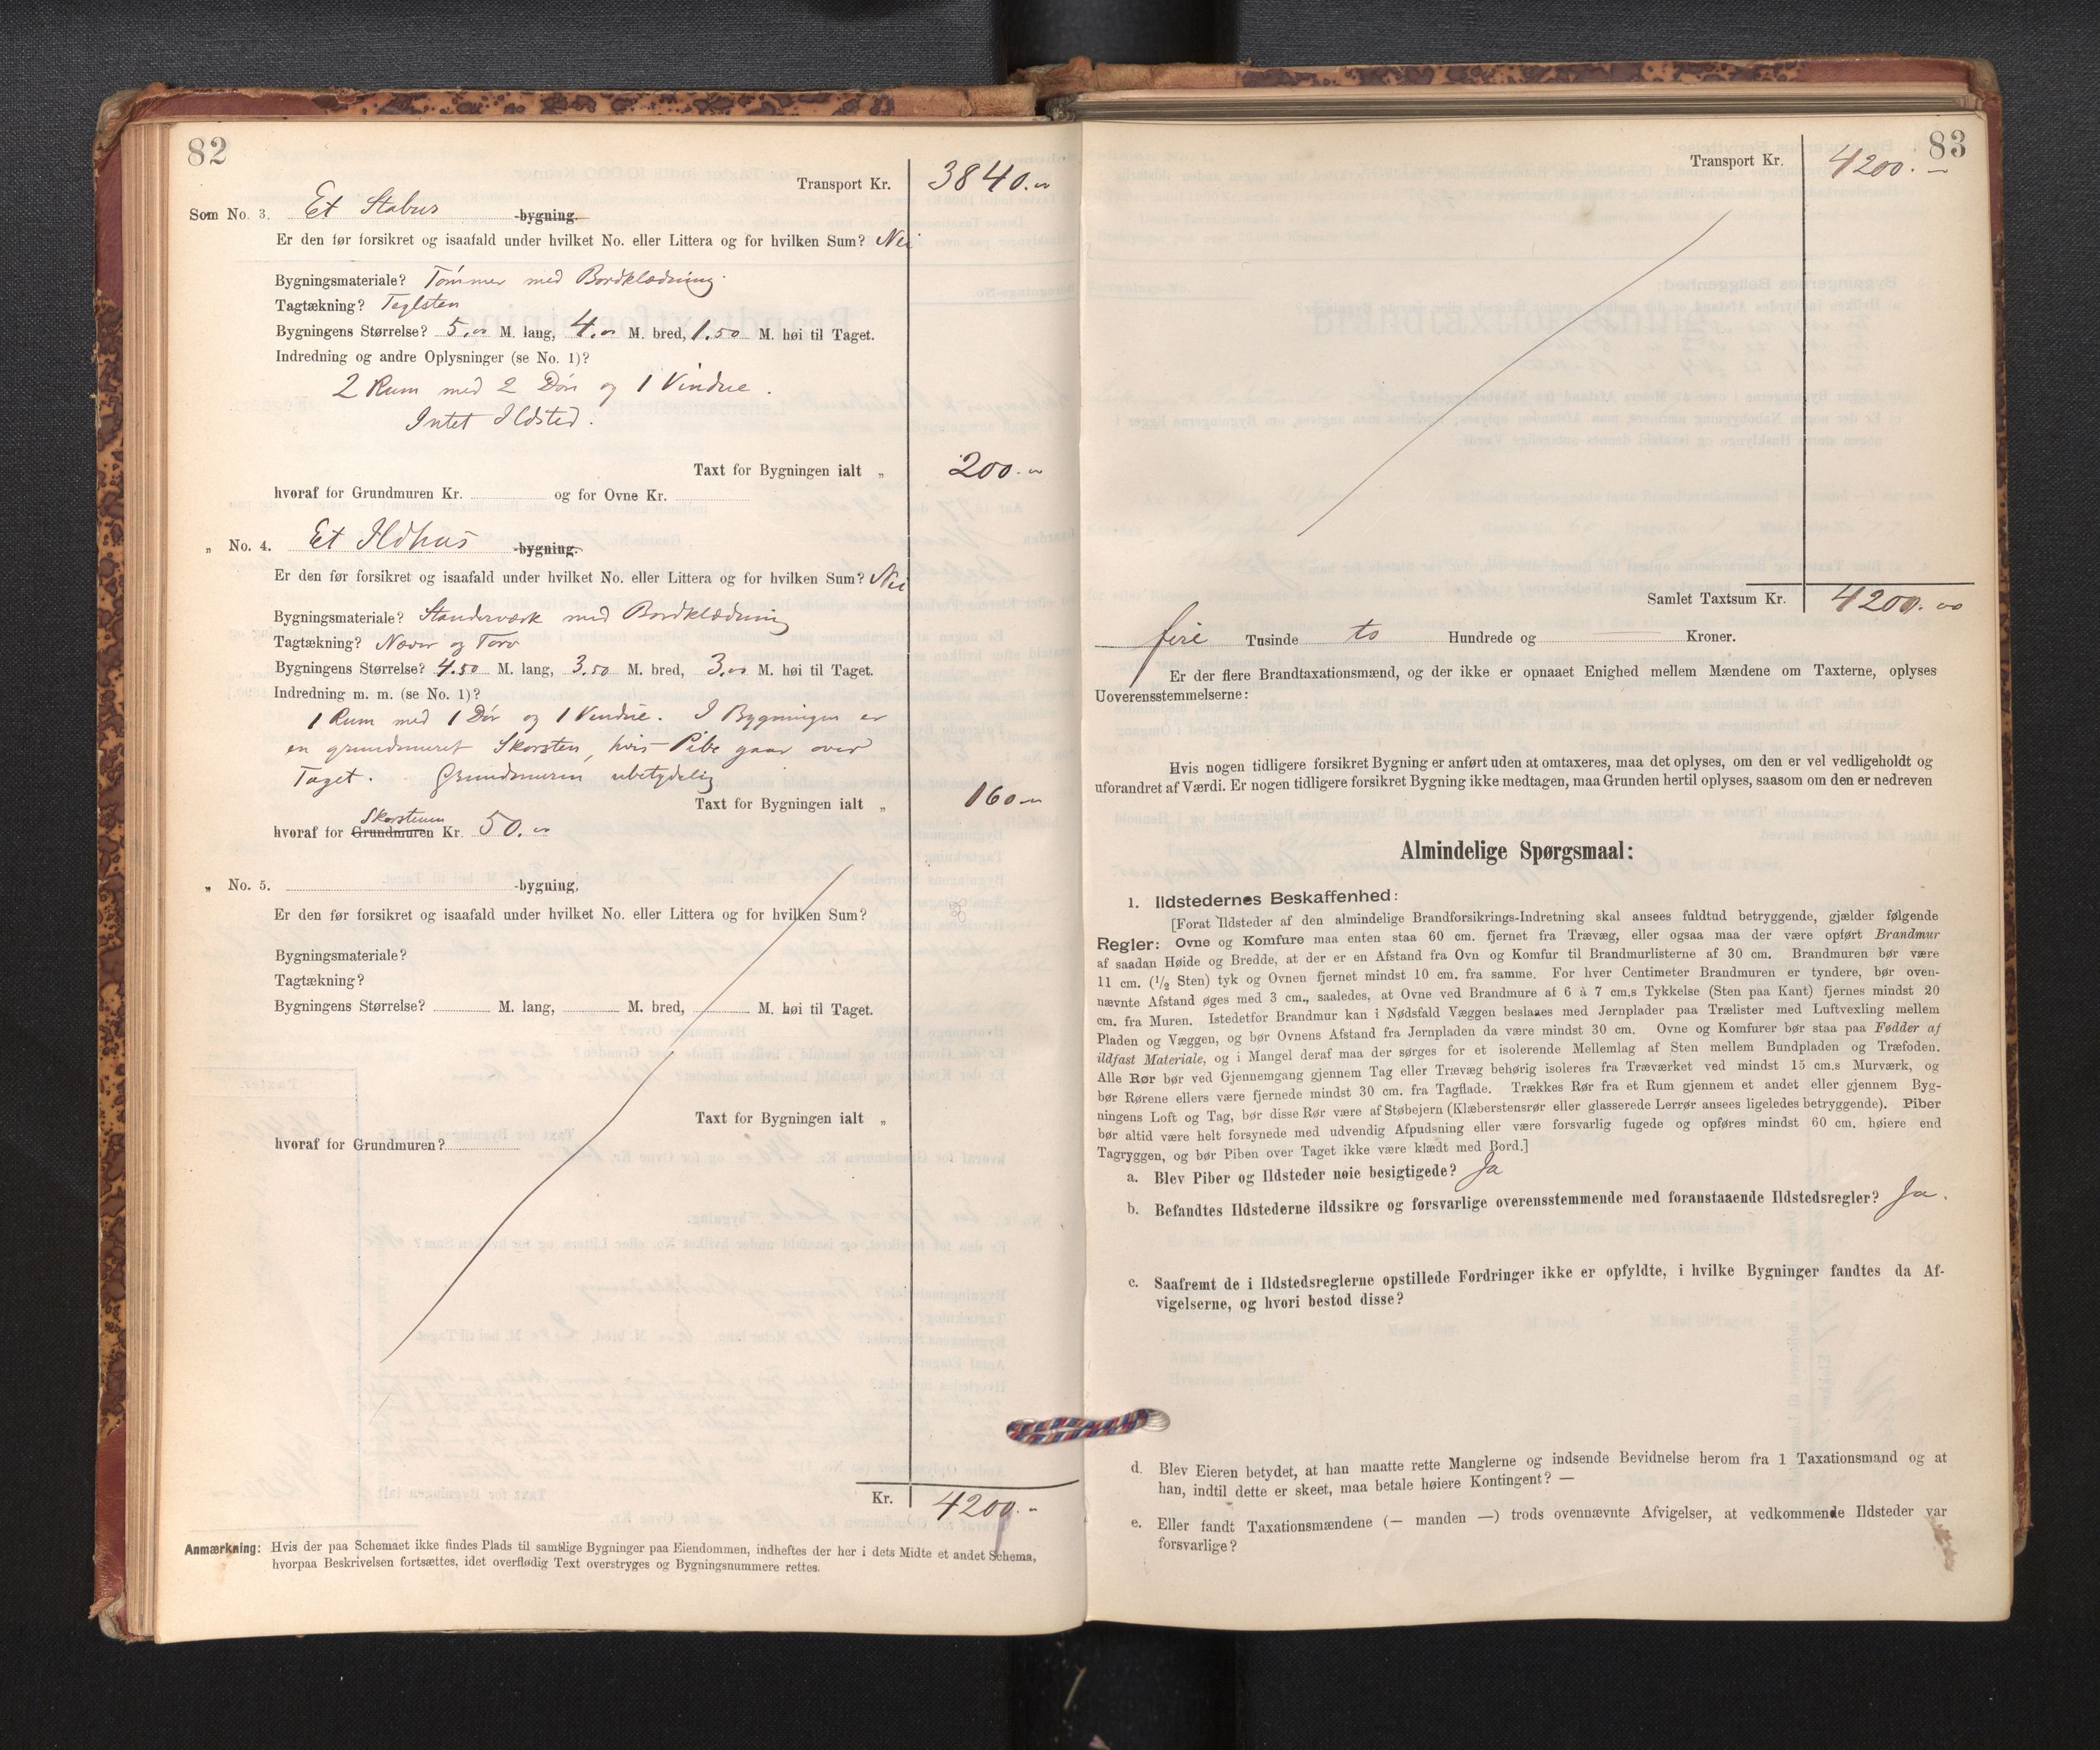 82
Transport Kr. 3840.00
Som No. 3. Et Stabur -bygning.
Er den før forsikret og isaafald under hvilket No. eller Littera og for hvilken Sum? Nei
Bygningsmateriale? Tømmer med Bordklædning.
Tagtækning? Teglsten
Bygningens Størrelse? 5.00 M. lang, 4.00 M. bred, 1.50 M. høi til Taget.
Indredning og andre Oplysninger (se No. 1)?
2 Rum med 2 Døre og 1 Vindue.
Intet Ildsted.
Taxt for Bygningen ialt „ 200.00
hvoraf for Grundmuren Kr. og for Ovne Kr.
„ No. 4. Et Ildhus -bygning.
Er den før forsikret og isaafald under hvilket No. eller Littera og for hvilken Sum? Nei
Bygningsmateriale? Standerværk med Bordklædning
Tagtækning? Næver og Torv
Bygningens Størrelse? 4.50 M. lang, 3.50 M. bred, 3.00 M. høi til Taget.
Indredning m. m. (se No. 1)?
1 Rum med 1 Dør og 1 Vindue. I Bygningen er
en grundmuret Skorsten, hvis Pibe gaar over
Taget. Grundmuren ubetydelig
Taxt for Bygningen ialt „ 160.00
Skorstenen
hvoraf for Grundmuren Kr. 50.00
„ No. 5. -bygning,
Er den før forsikret og isaafald under hvilket No. eller Littera og for hvilken Sum?
Bygningsmateriale?
Tagtækning?
Bygningens Størrelse? M. lang, M. bred, M. høi til Taget.
Taxt for Bygningen ialt „
hvoraf for Grundmuren?
Kr. 4200.-
Anmærkning: Hvis der paa Schemaet ikke findes Plads til samtlige Bygninger paa Eiendommen, indheftes der her i dets Midte et andet Schema,
hvorpaa Beskrivelsen fortsættes, idet overflødig Text overstryges og Bygningsnummere rettes.
83
Transport Kr. 4200.-
Samlet Taxtsum Kr. 4200.00
fire Tusinde to Hundrede og — Kroner.
Er der flere Brandtaxationsmænd, og der ikke er opnaaet Enighed mellem Mændene om Taxterne, oplyses
Uoverensstemmelserne:
Hvis nogen tidligere forsikret Bygning er anført uden at omtaxeres, maa det oplyses, om den er vel vedligeholdt og
uforandret af Værdi. Er nogen tidligere forsikret Bygning ikke medtagen, maa Grunden hertil oplyses, saasom om den er nedreven
Almindelige Spørgsmaal:
1. Ildstedernes Beskaffenhed:
[Forat Ildsteder af den almindelige Brandforsikrings-Indretning skal ansees fuldtud betryggende, gjælder følgende
Regler: Ovne og Komfure maa enten staa 60 cm. fjernet fra Trævæg, eller ogsaa maa der være opført Brandmur
af saadan Høide og Bredde, at der er en Afstand fra Ovn og Komfur til Brandmurlisterne af 30 cm. Brandmuren bør være
11 cm. (1/2 Sten) tyk og Ovnen fjernet mindst 10 cm. fra samme. For hver Centimeter Brandmuren er tyndere, bør oven-
nævnte Afstand øges med 3 cm., saaledes, at Ovne ved Brandmure af 6 à 7 cm.s Tykkelse (Sten paa Kant) fjernes mindst 20
cm. fra Muren. Istedetfor Brandmur kan i Nødsfald Væggen beslaaes med Jernplader paa Trælister med Luftvexling mellem
Pladen og Væggen, og bør Ovnens Afstand fra Jernpladen da være mindst 30 cm. Ovne og Komfurer bør staa paa Fødder af
ildfast Materiale, og i Mangel deraf maa der sørges for et isolerende Mellemlag af Sten mellem Bundpladen og Træfoden.
Alle Rør bør ved Gjennemgang gjennem Tag eller Trævæg behørig isoleres fra Træværket ved mindst 15 cm.s Murværk, og
bør Rørene ellers være fjernede mindst 30 cm. fra Tagflade. Trækkes Rør fra et Rum gjennem et andet eller gjennem Byg-
ningens Loft og Tag, bør disse Rør være af Støbejern (Klæberstensrør eller glasserede Lerrør ansees ligeledes betryggende). Piber
bør altid være helt forsynede med udvendig Afpudsning eller være forsvarlig fugede og opføres mindst 60 cm. høiere end
Tagryggen, og bør Piben over Taget ikke være klædt med Bord.]
a. Blev Piber og Ildsteder nøie besigtigede? Ja
b. Befandtes Ildstederne ildssikre og forsvarlige overensstemmende med foranstaaende Ildstedsregler? Ja.
c. Saafremt de i Ildstedsreglerne opstillede Fordringer ikke er opfyldte, i hvilke Bygninger fandtes da Af-
vigelserne, og hvori bestod disse?
d. Blev Eieren betydet, at han maatte rette Manglerne og indsende Bevidnelse herom fra 1 Taxationsmand og at
han, indtil dette er skeet, maa betale høiere Kontingent? —
e. Eller fandt Taxationsmændene (— manden —) trods ovennævnte Afvigelser, at vedkommende Ildsteder var
forsvarlige?